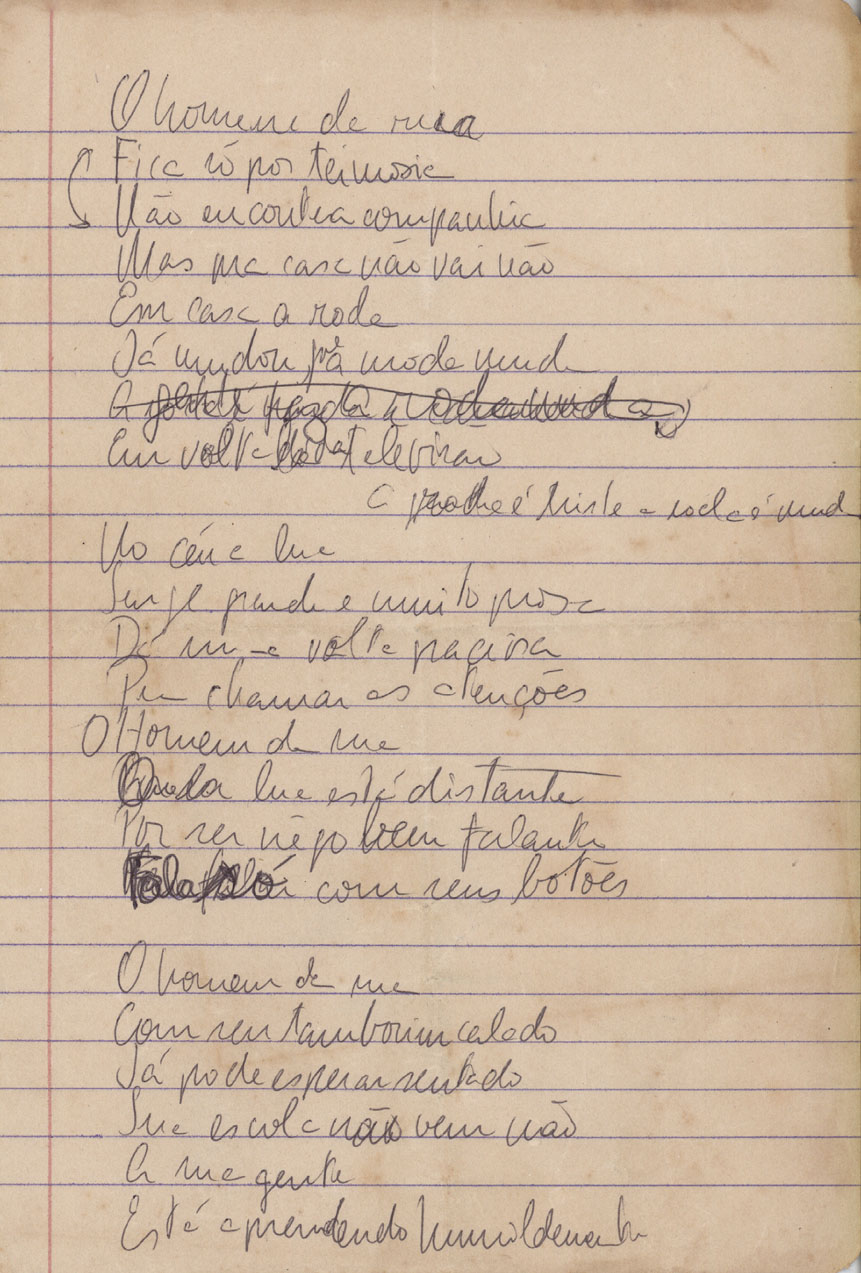 O homem da rua
Fica só por teimosia
Não encontra companhia
Mas pra casa não vai não
Em casa a roda
Já mudou já moda muda
A roda muda
Em volta da televisão
a roda é triste a roda é muda
No céu a lua
Surge grande e muito prosa
Dá uma volta graciosa
Pra chamar as atenções
O Homem da rua
Que da lua está distante
Por ser nego bem falante
Fala só com seus botões
O homem da rua
Com seu tamborim calado
Já pode esperar sentado
Sua escola não vem não
A sua gente
Está aprendendo humildemente